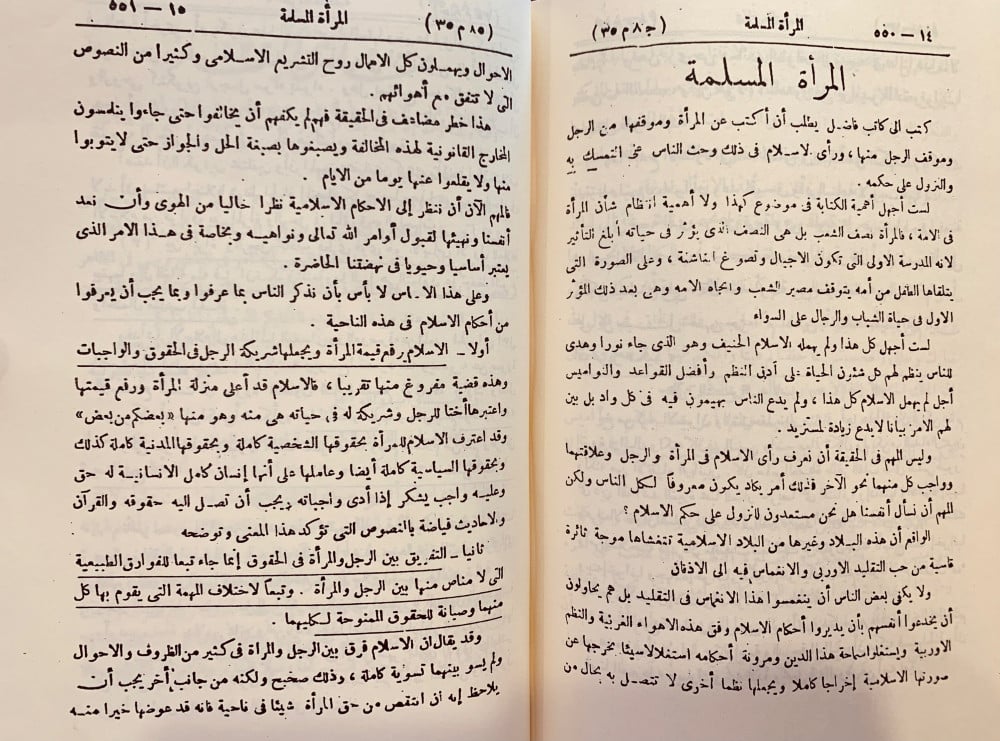 ١٤ — ٥٥٠ المرأة المسلمة (ج٨ م ٣٥)
المرأة المسلمة
كتب الى كاتب فاضل يطلب أن أكتب عن المرأة وموقفها من الرجل
وموقف الرجل منها ، ورأى الاسلام فى ذلك وحث الناس على التمسك به
والنزول على حكمه .
لست أجهل أهمية الكتابة فى موضوع كهذا ولا أهمية انتظام شأن المرأة
فى الامة ، فالمرأة نصف الشعب بل هى النصف الذى يؤثر فى حياته أبلغ التأثير
لانه المدرسة الاولى التى تكون الاجيال وتصوغ الناشئة ، وعلى الصورة التى
يتلقاها الطفل من أمه يتوقف مصير الشعب واتجاه الامة وهى بعد ذلك المؤثر
الاول فى حياة الشباب والرجال على السواء
لست أجهل كل هذا ولم يهمله الاسلام الحنيف وهو الذى جاء نورا وهدى
للناس ينظم لهم كل شئون الحياة على أدق النظم وأفضل القواعد والنواميس
أجل لم يهمل الاسلام كل هذا ، ولم يدع الناس يهيمون فيه فى كل واد بل بين
لهم الامر بيانا لا يدع زيادة لمستزيد .
وليس المهم فى الحقيقة أن نعرف رأى الاسلام فى المرأة والرجل وعلاقتهما
وواجب كل منهما نحو الآخر فذلك أمر يكاد يكون معروفا لكل الناس ولكن
المهم أن نسأل أنفسنا هل نحن مستعدون للنزول على حكم الاسلام ؟
الواقع أن هذه البلاد وغيرها من البلاد الاسلامية تتغشاها موجة ثائرة
قاسية من حب التقليد الاوربى والانغماس فيه الى الاذقان
ولا يكفى بعض الناس أن ينغمسوا هذا الانغماس فى التقليد بل هم يحاولون
أن يخدعوا أنفسهم بأن يديروا أحكام الاسلام وفق هذه الاهواء الغربية والنظم
الاوربية ويستغلوا سماحة هذا الدين ومرونة أحكامه استغلالا سيئا يخرجها عن
صورتها الاسلامية إخراجا كاملا ويجعلها نظما أخرى لا تتصل به بحال من
(ج٨ م ٣٥) المرأة المسلمة ١٥ — ٥٥١
الاحوال ويهملون كل الاهمال روح التشريع الاسلامى وكثيرا من النصوص
التى لا تتفق مع أهوائهم .
هذا خطر مضاعف فى الحقيقة فهم لم يكفهم أن يخالفوا حتى جاءوا يتلمسون
المخارج القانونية لهذه المخالفة ويصبغوها بصبغة الحل والجواز حتى لا يتوبوا
منها ولا يقلعوا عنها يوما من الايام .
فالمهم الآن أن ننظر إلى الاحكام الاسلامية نظرا خاليا من الهوى وأن نعد
أنفسنا ونهيئها لقبول أوامر الله تعالى ونواهيه وبخاصة فى هذا الامر الذى
يعتبر أساسيا وحيويا فى نهضتنا الحاضرة .
وعلى هذا الاساس لا بأس بأن نذكر الناس بما عرفوا وبما يجب أن يعرفوا
من أحكام الاسلام فى هذه الناحية .
أولا — الاسلام رفع قيمة المرأة ويجعلها شريكة الرجل فى الحقوق والواجبات
وهذه قضية مفروغ منها تقريبا ، فالاسلام قد أعلى منزلة المرأة ورفع قيمتها
واعتبرها أختا للرجل وشريكة له فى حياته هى منه وهو منها « بعضكم من بعض »
وقد اعترف الاسلام للمرأة بحقوقها الشخصية كاملة وبحقوقها المدنية كاملة كذلك
وبحقوقها السياسية كاملة أيضا وعاملها على أنها إنسان كامل الانسانية له حق
وعليه واجب يشكر إذا أدى واجباته ويجب أن تصل اليه حقوقه والقرآن
والاحاديث فياضة بالنصوص التى تؤكد هذا المعنى وتوضحه
ثانيا — التفريق بين الرجل والمرأة فى الحقوق إنما جاء تبعا للفوارق الطبيعية
التى لا مناص منها بين الرجل والمرأة . وتبعا لاختلاف المهمة التى يقوم بها كل
منهما وصيانة للحقوق الممنوحة لكليهما .
وقد يقال ان الاسلام فرق بين الرجل والمرأة فى كثير من الظروف والاحوال
ولم يسو بينهما تسوية كاملة ، وذلك صحيح ولكنه من جانب أخر يجب أن
يلاحظ إنه ان انتقص من حق المرأة شيئا فى ناحية فانه قد عوضها خيرا منه